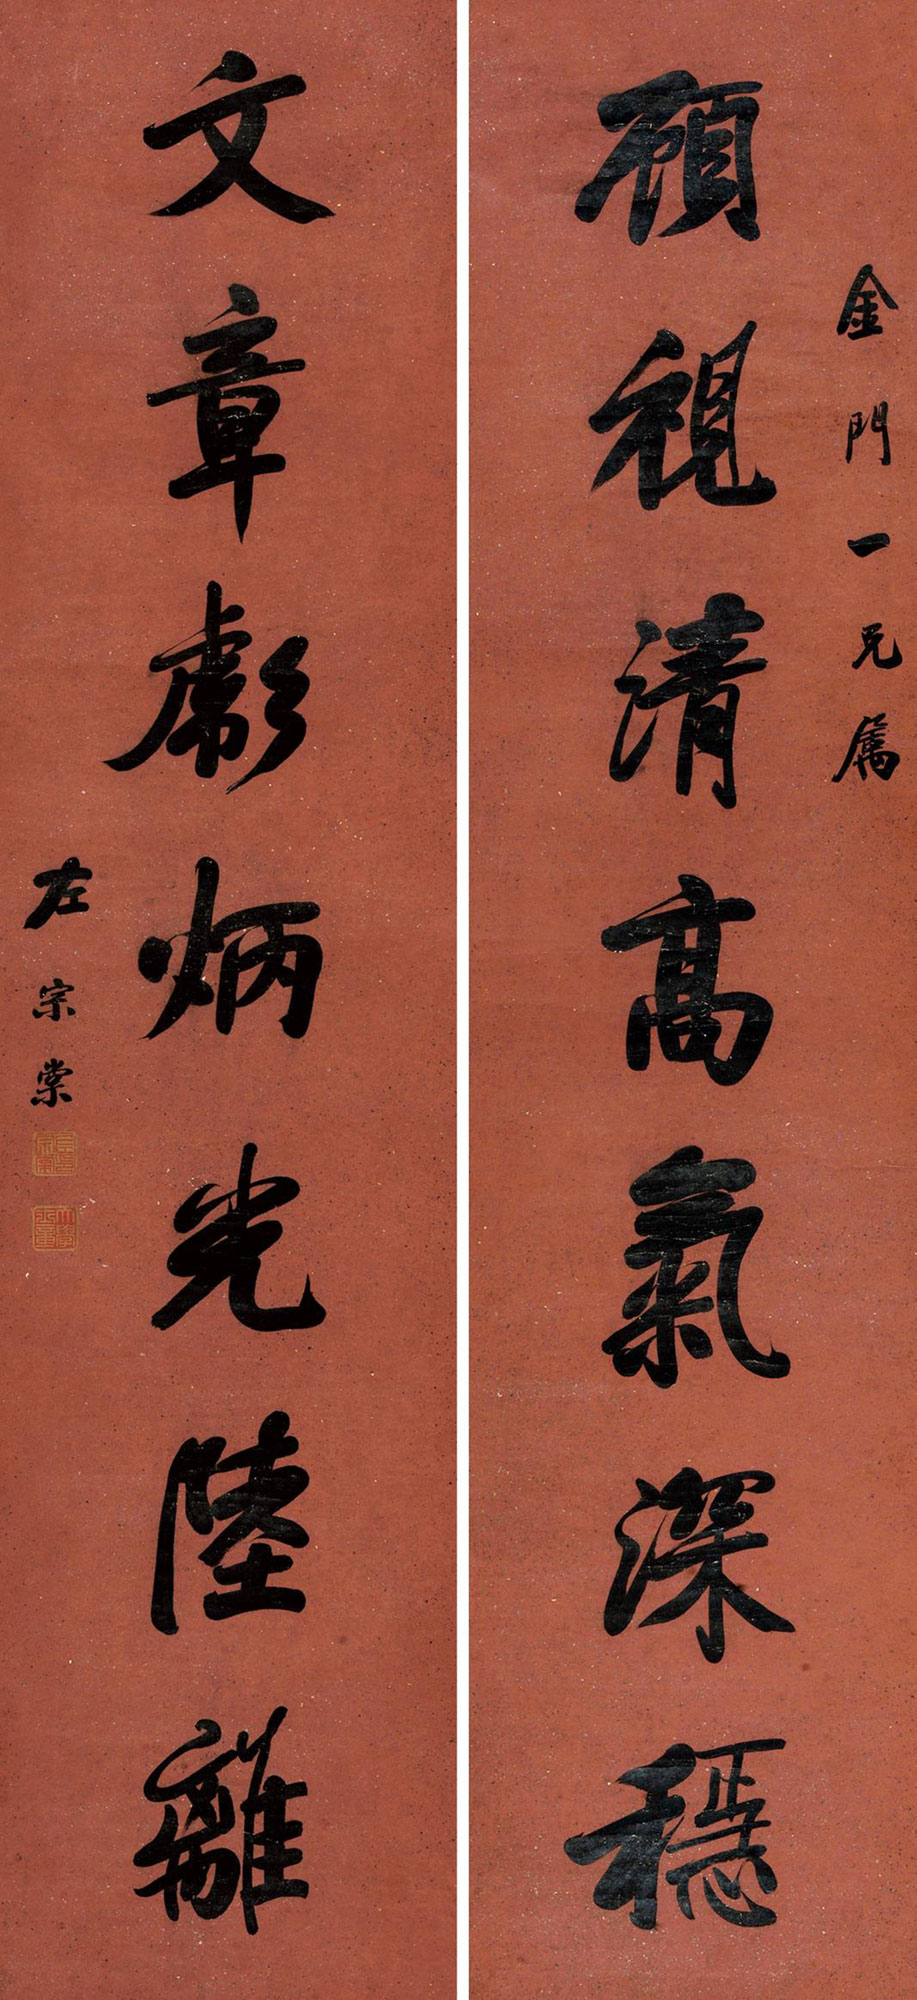 金門一兄属
顧視清高氣深穩
文章彪炳光陸離
左宗棠